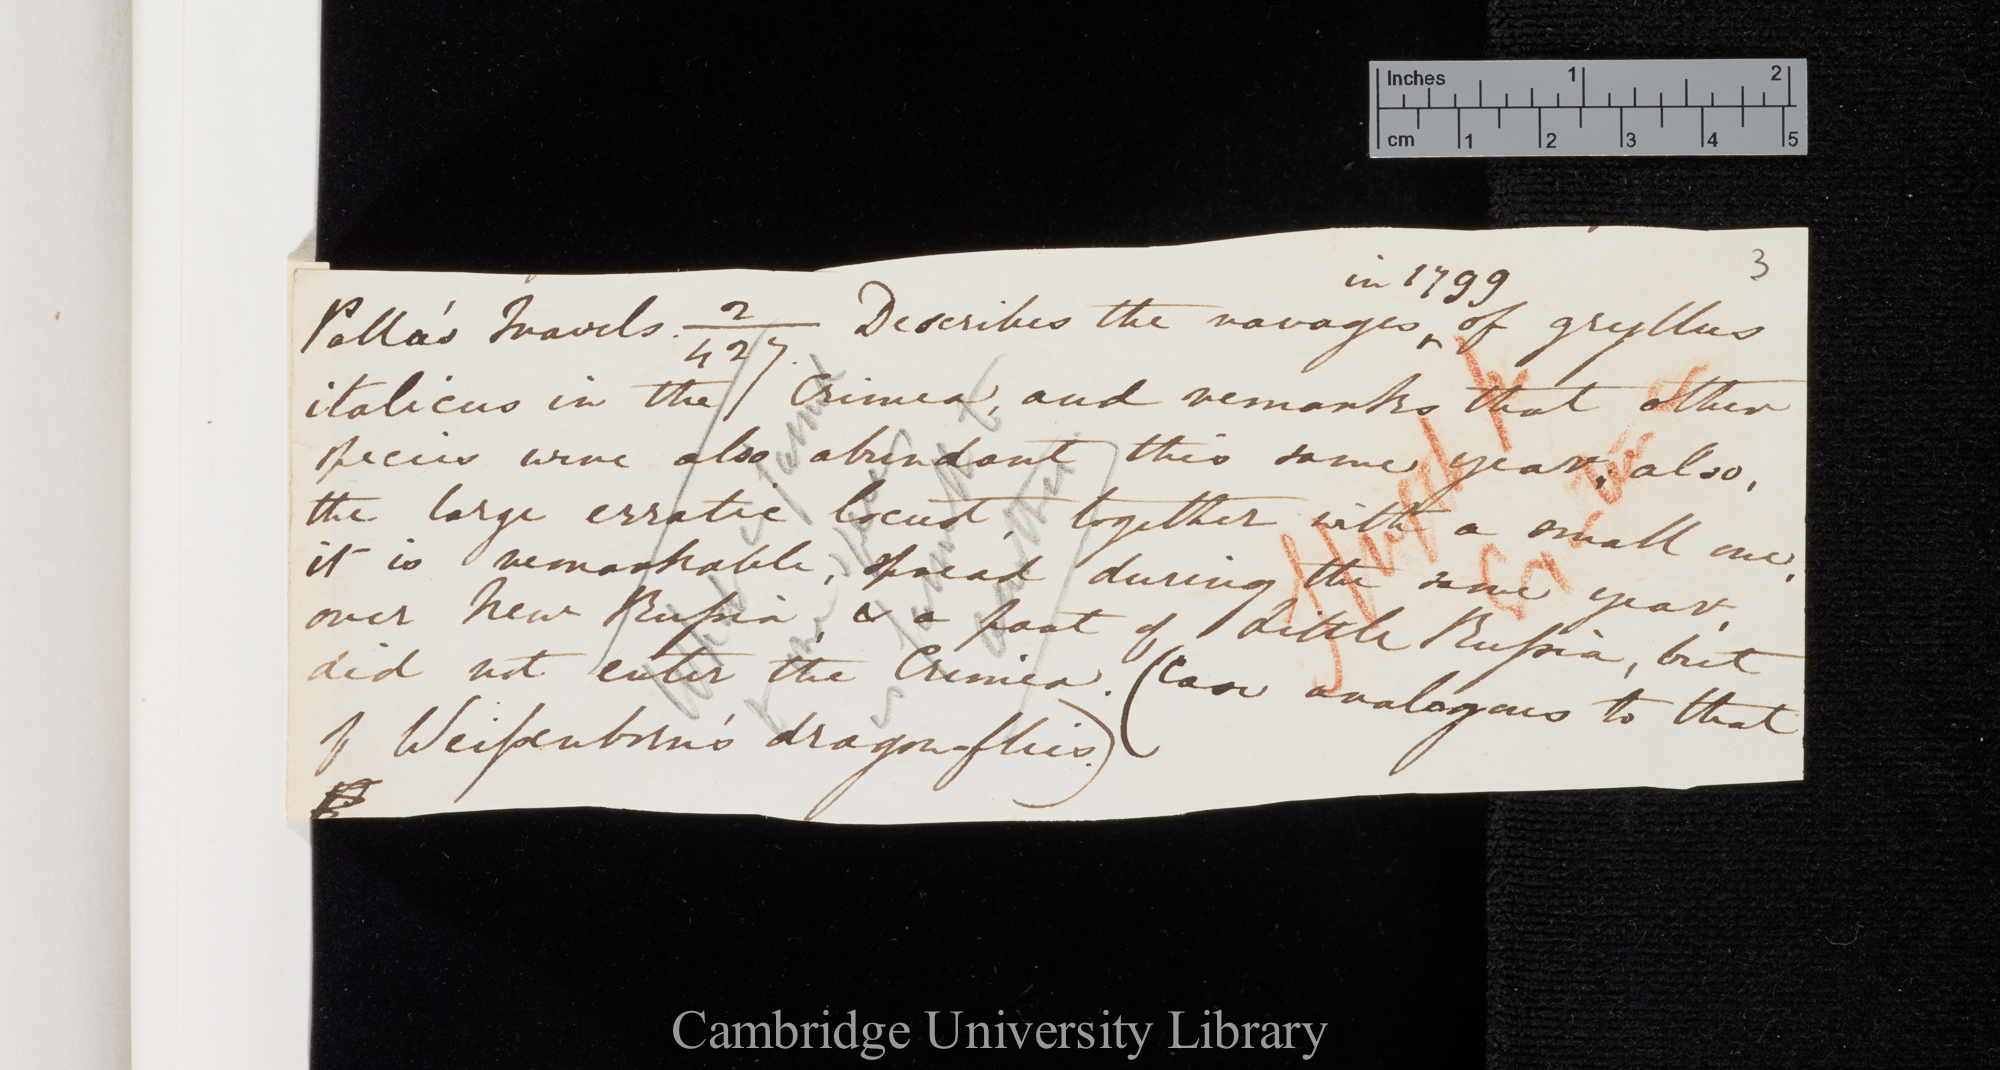 3
in 1799
Pallas's Travels. 2/427. Describes the ravages of gryllus
italicus in the Crimea, and remarks that other
species were also abundant this same year; also,
the large erratic locust together with a small one,
it is remarkable, spread during the same year,
over New Russia, & a part of Little Russia, but
did not enter the Crimea. (Case analogous to that
of Weissenborn's dragon-flies.)
What is
Inches 1 2
cm 1 2 3 4 5
Cambridge University Library